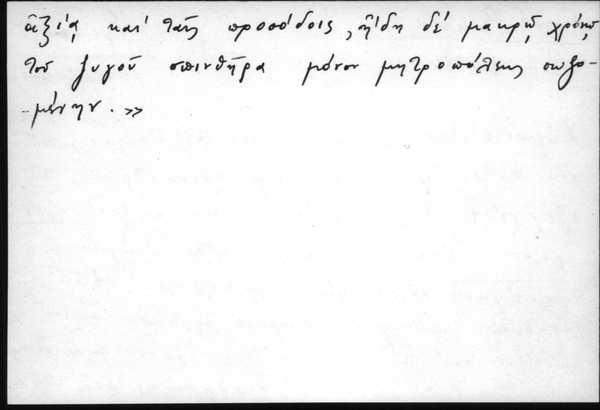 ἀξίᾳ καί ταῖς προσόδοις, ἤδη δέ μακρῷ χρόνῳ
τοῦ ζυγοῦ σπινθῆρα μόνον μητροπόλεως σωζο-
-μένην. »